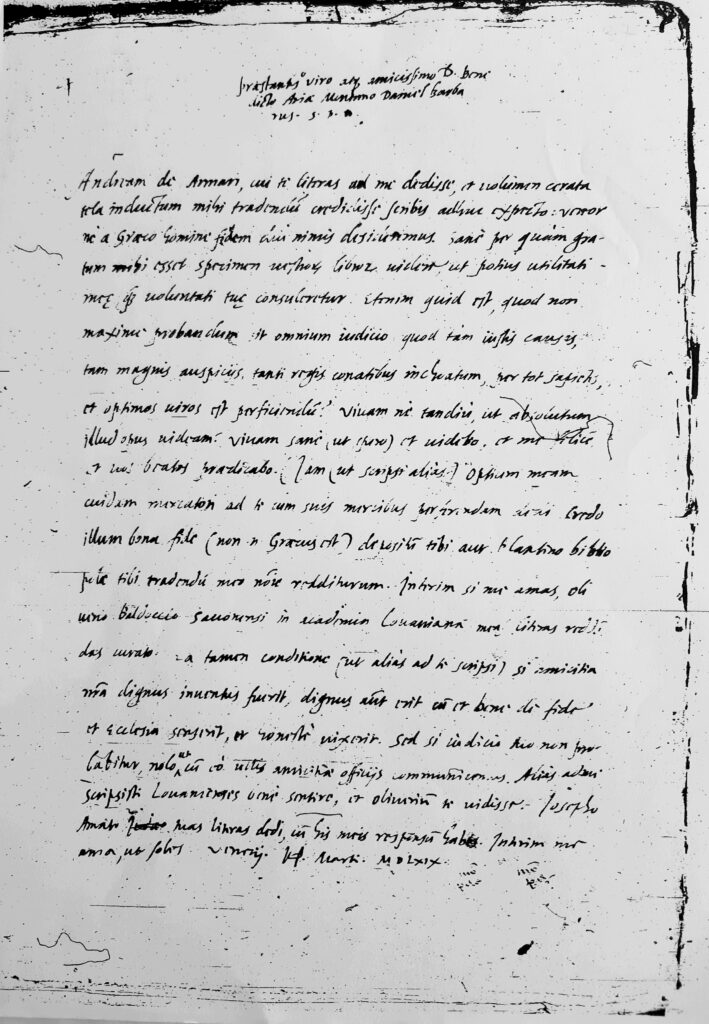 præstantiss.º viro atq; amicissimo D. Bene
dicto Ariæ Montano Daniel Barba
rus. S. P. D.
Andream de Armari, cui te literas ad me dedisse, et volumen cerata
tela inductum mihi tradendū credidisse scribis adhuc expecto: vereor
nè a Græco homine fidem nimis desideremus. sanè per quàm gra-
tum mihi esset specimen libror. videre, ut potius utilitati-
meę q̄; voluntati tuę consuleretur. Etenim quid est, quod non
maximè probandum sit omnium iudicio quod tam iustis causis,
tam magnis auspicijs, tanti regis conatibus inchoatum, per tot sapiētes,
et optimos viros est perficiendū? vivam nè tandiù, ut absolutum
illud opus videam? vivam sanè (ut spero) et videbo, et me felicē
et vos beatos prædicabo. Iam (ut scripsi alias) Opticam meam
cuidam mercatori ad te cum suis mercibus perferendam dedi. Credo
illum bona fide (non n. Græcus est) depositū tibi aut Plantino biblio
polæ tibi tradendū meo noīe redditurum. Interim si me amas, Oli
verio Balduccio Savonensi in academia Lovaniana meas literas redd
das curato. ea tamen conditione (ut alias ad te scripsi) si amicitia
nrā dignus inventus fuerit, dignus aūt erit cū et bene de fide
et Ecclesia senserit, et honestè vixerit. Sed si iudicio tuo non pro
babitur, nolo ut cū eo ullis amicitiæ officijs communicemus. Alias ad me
scripsisti Lovanienses benè sentire, et oliverium te vidisse. Josepho
Amato tuas literas dedi, cū his meis responsū habes. Interim me
ama, ut soles. Venetijs. Marti. MDLXIX.